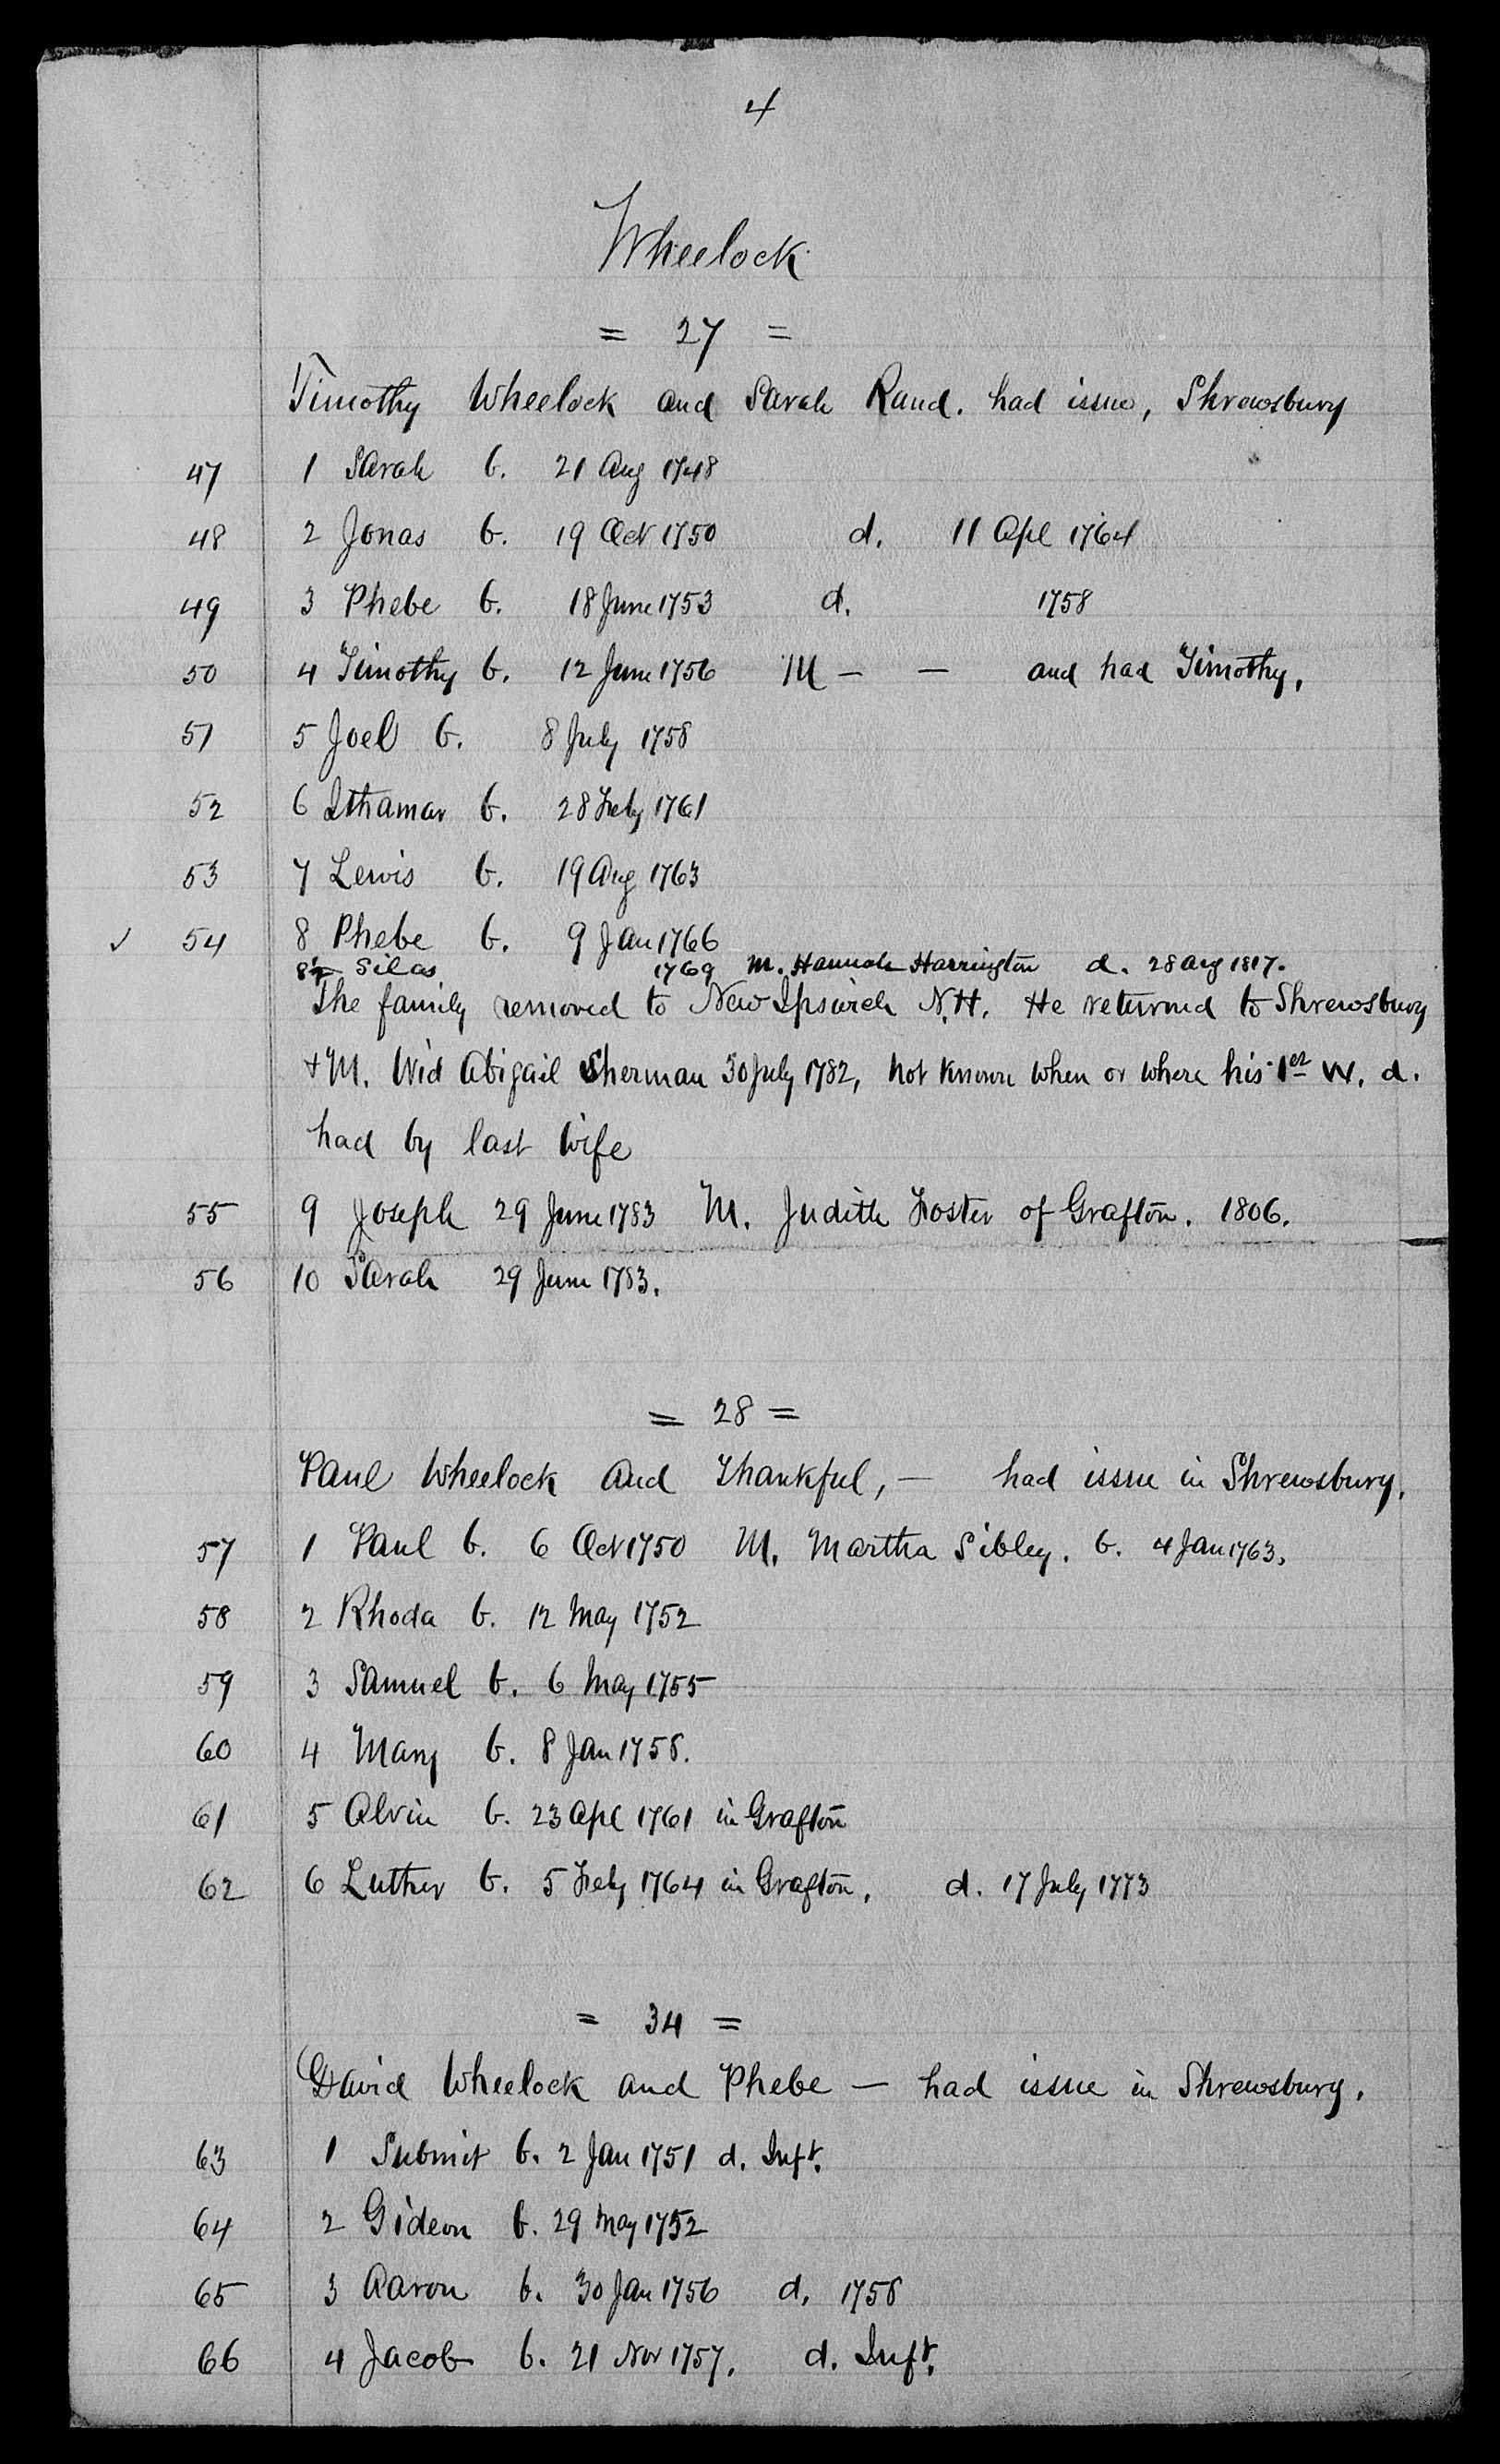 4
Wheelock
= 27 =
Timothy Wheelock and Sarah Rand. had issue, Shrewsbury
47 1 Sarah b. 21 Aug 1748
48 2 Jonas b. 19 Oct 1750 d. 11 Apl 1764
49 3 Phebe b. 18 June 1753 d. 1758
50 4 Timothy b. 12 June 1756 M - - and had Timothy,
51 5 Joel b. 8 July 1758
52 6 Ithamar b. 28 Feby 1761
53 7 Lewis b. 19 Aug 1763
✓ 54 8 Phebe b. 9 Jan 1766
8½ Silas 1769 m. Hannah Harrington d. 28 Aug 1817.
The family removed to New Ipswich N.H. He returned to Shrewsbury
+ M. Wid Abigail Sherman 30 July 1782, not known when or where his 1st W. d.
had by last wife
55 9 Joseph 29 June 1783 M. Judith Foster of Grafton. 1806.
56 10 Sarah 29 June 1783.
= 28 =
Paul Wheelock and Thankful, — had issue in Shrewsbury.
57 1 Paul b. 6 Oct 1750 M. Martha Sibley. b. 4 Jan 1763.
58 2 Rhoda b. 12 May 1752
59 3 Samuel b. 6 May 1755
60 4 Mary b. 8 Jan 1758.
61 5 Alvin b. 23 Apl 1761 in Grafton
62 6 Luther b. 5 Feby 1764 in Grafton, d. 17 July 1773
= 34 =
David Wheelock and Phebe — had issue in Shrewsbury.
63 1 Submit b. 2 Jan 1751 d. Inft.
64 2 Gideon b. 29 May 1752
65 3 Aaron b. 30 Jan 1756 d. 1758
66 4 Jacob b. 21 Nov 1757. d. Inft.